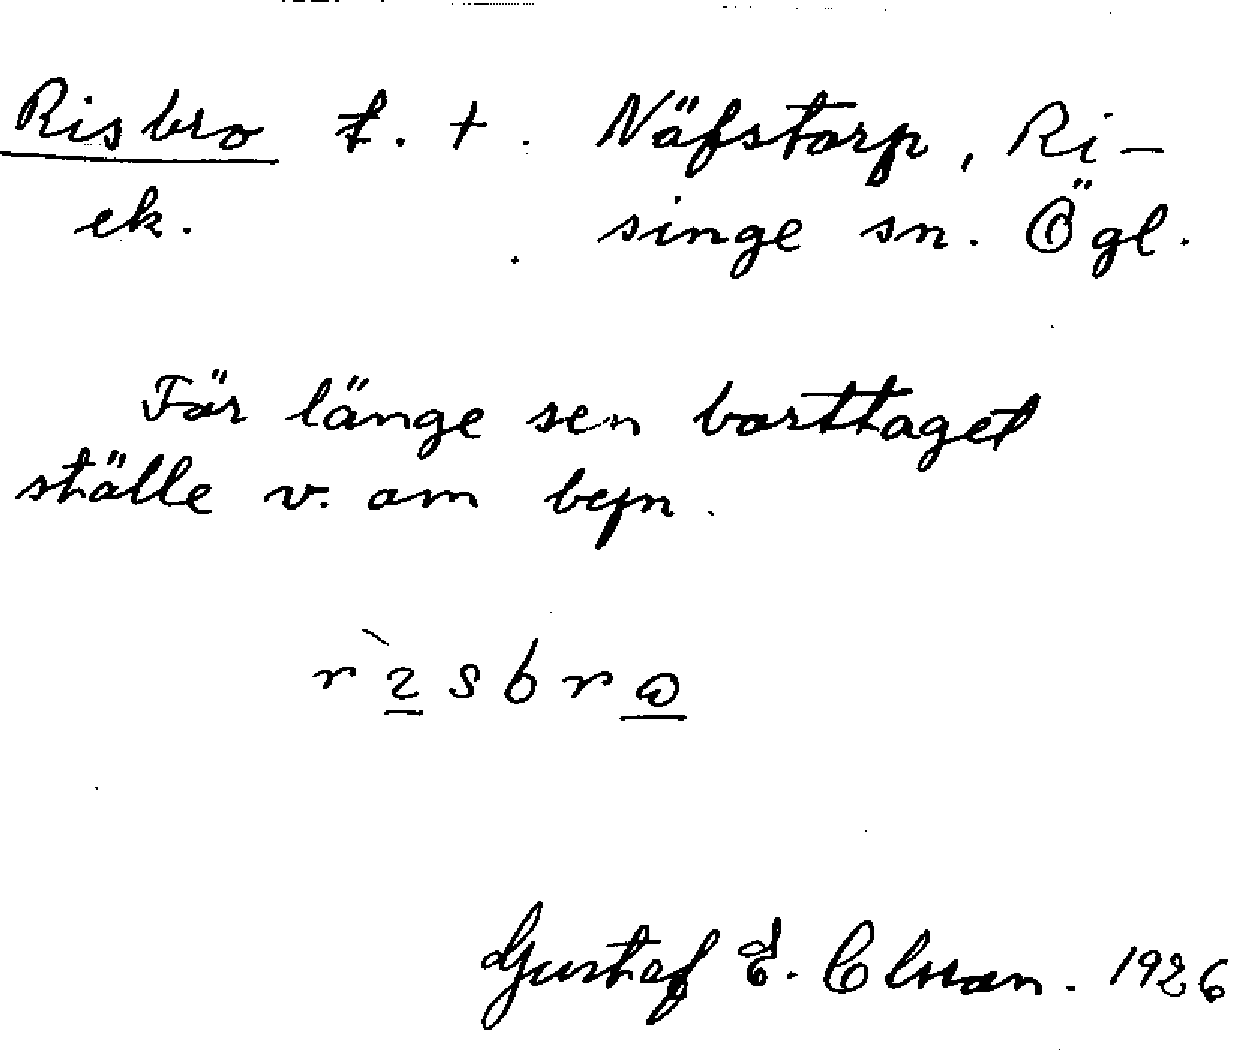 Risbro t. + . Näfstorp, Ri-
ek. singe sn. Ögl.
För länge sen borttaget
ställe v. om
risbro
Gustaf E. 1926